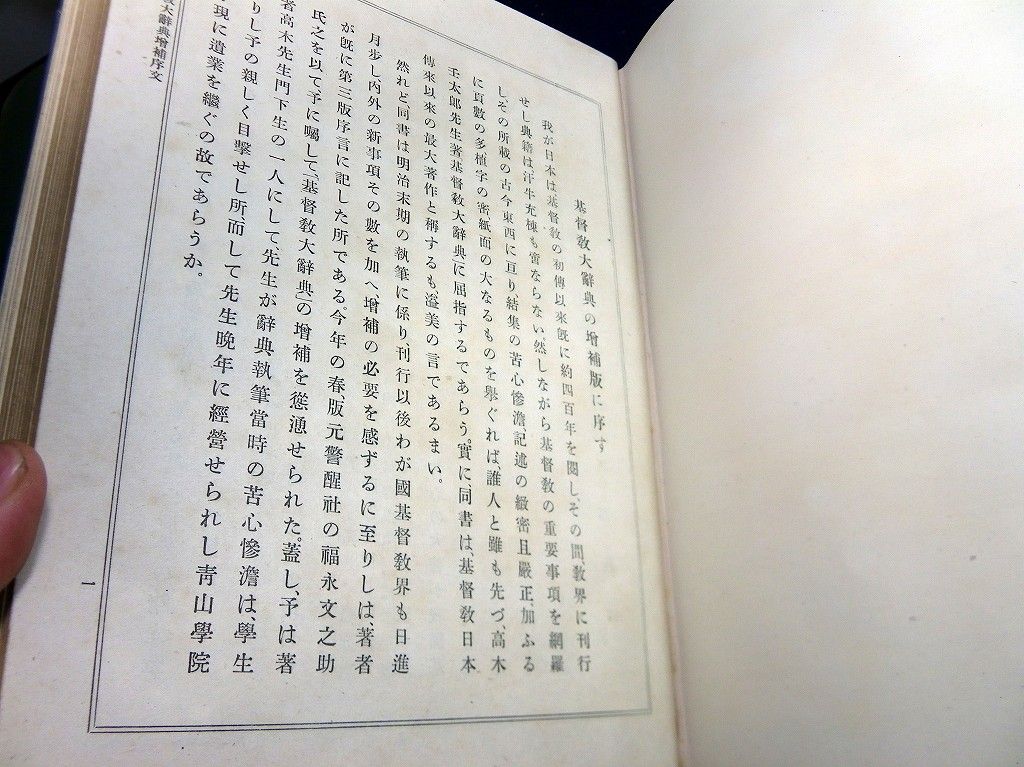 基督敎大辭典の增補版に序す
我が日本は基督敎の初傳以來旣に約四百年を閱し、その間敎界に刊行
せし典籍は、汗牛充棟も啻ならない然しながら基督敎の重要事項を網羅
し、その所載の古今東西に亘り、結集の苦心慘澹、記述の緻密且嚴正、加ふる
に頁數の多、植字の密、紙面の大なるものを擧ぐれば、誰人と雖も先づ、高木
壬太郎先生著基督敎大辭典に屈指するであらう。實に、同書は、基督敎日本
傳來以來の最大著作と稱するも、溢美の言であるまい。
然れど、同書は明治末期の執筆に係り、刊行以後わが國基督敎界も日進
月步し、內外の新事項その數を加へ、增補の必要を感ずるに至りしは、著者
が旣に第三版序言に記した所である、今年の春、版元警醒社の福永文之助
氏之を以て、予に囑して、「基督敎大辭典」の增補を慫慂せられた。蓋し、予は著
者高木先生門下生の一人にして、先生が辭典執筆當時の苦心慘澹は、學生
りし予の親しく目擊せし所、而して先生晚年に經營せられし靑山學院
現に遺業を繼ぐの故であらうか。
大辭典增補序文
一